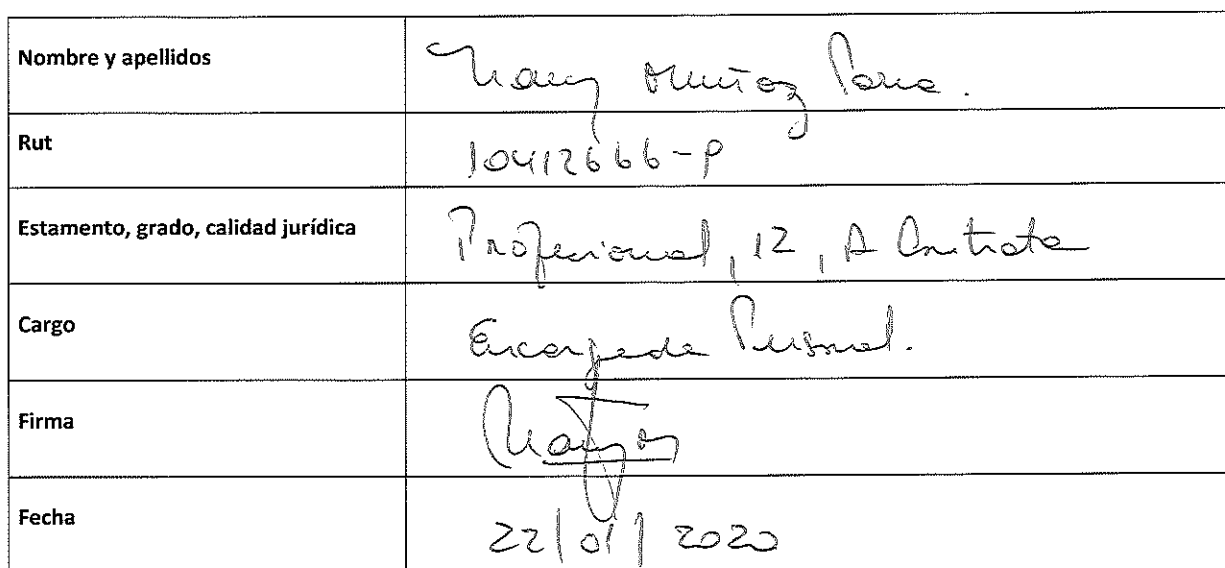 Nombre y apellidos Nancy Muñoz Parra.
Rut 10412666-P
Estamento, grado, calidad jurídica Profesional, 12, A Contrata
Cargo Encargada Personal.
Firma
Fecha 22/01/2020